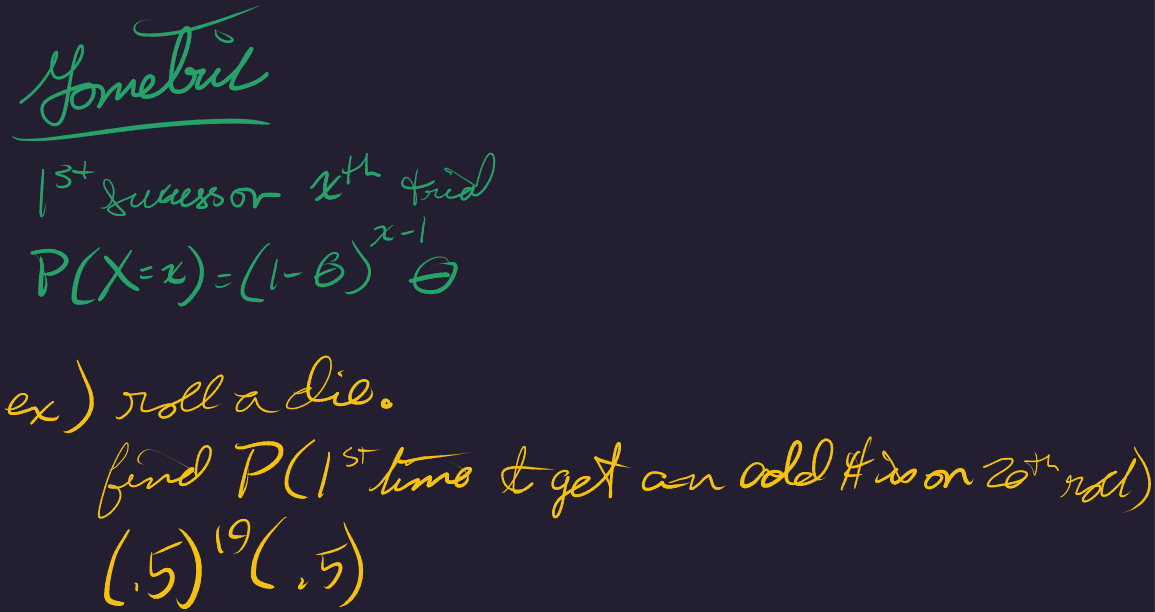 Geometric
1st success on xth trial
P(X=x)=(1-θ)^{x-1} θ
ex) roll a die.
find P(1st time I get an odd # is on 20th roll)
(.5)^{19}(.5)